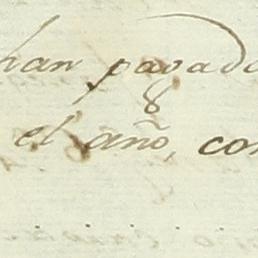 han pagado
el año, con